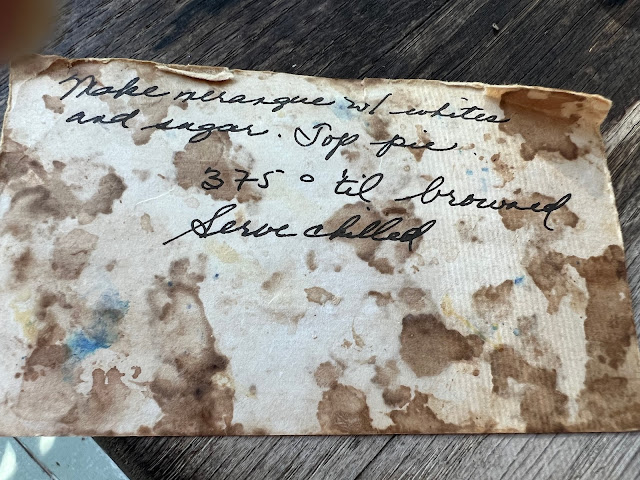 Make merangue w/ whites
and sugar. Top pie.
375° 'til browned
Serve chilled